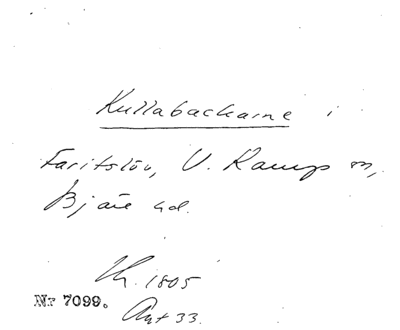 Kullabackarne i
Faritslöv, V. Karup sn,
Bjäre hd.
Lk. 1805
Nr 7099.
Akt 33.